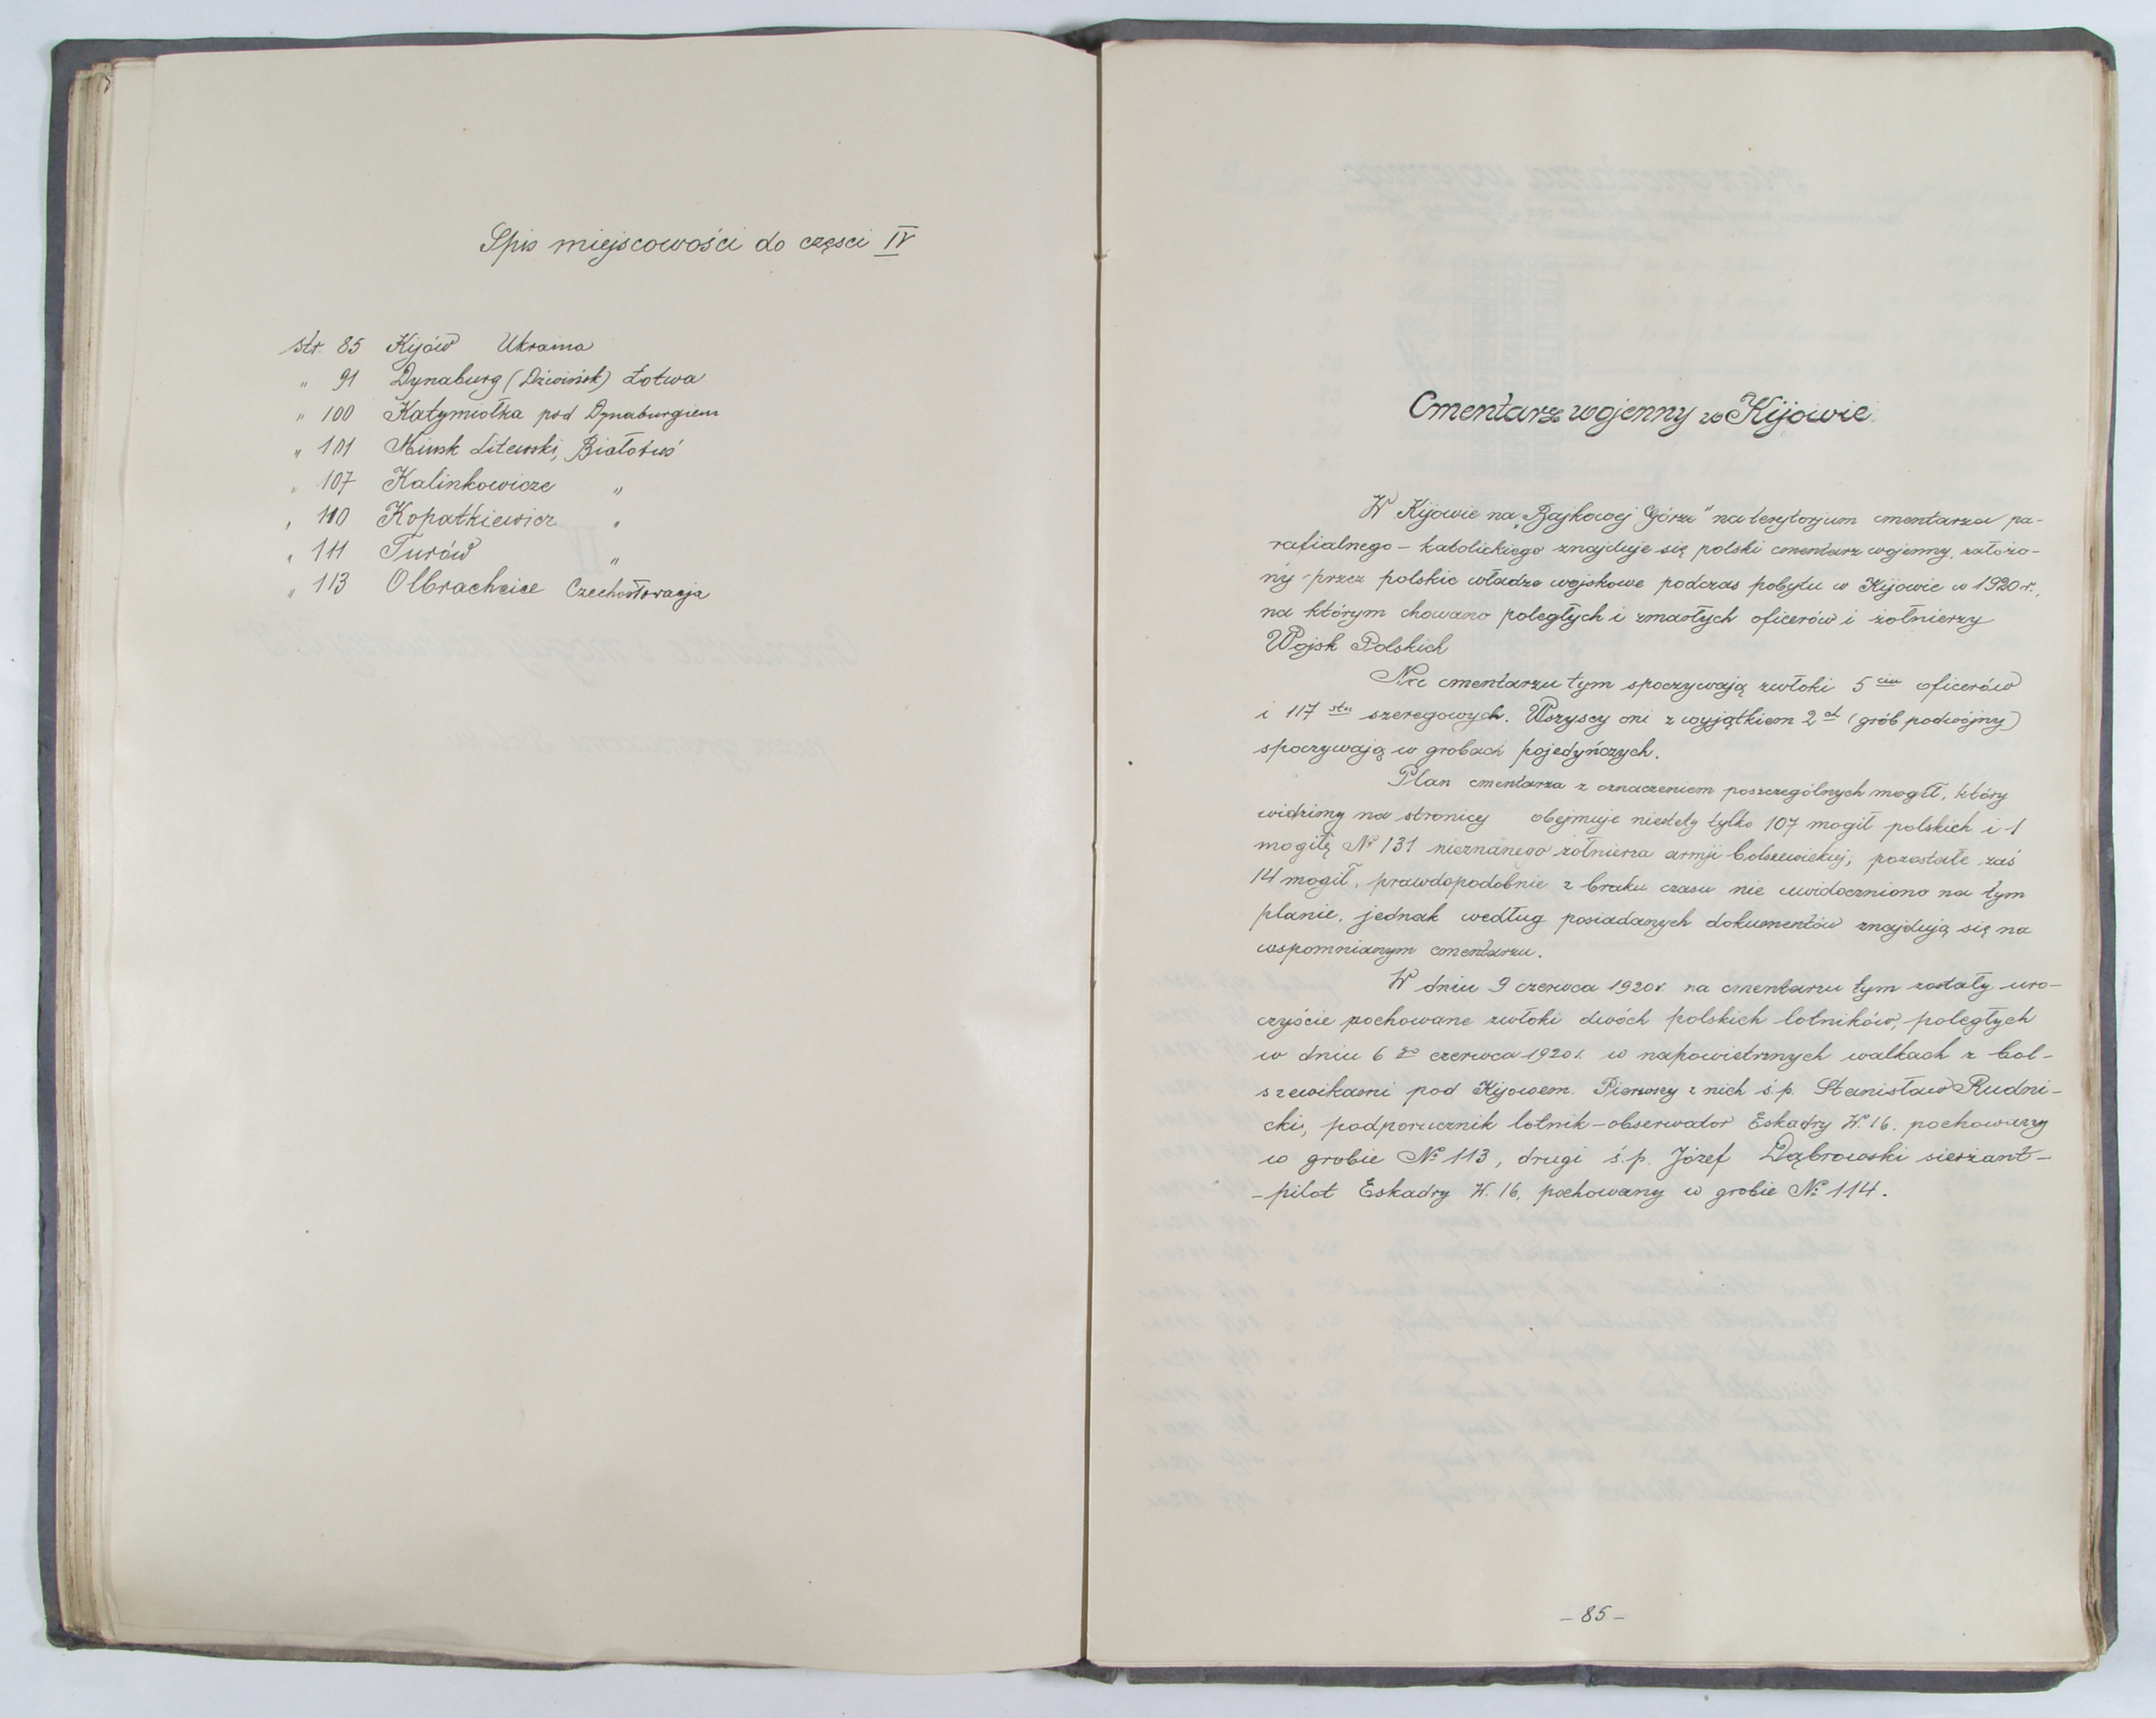 Spis miejscowości do częsci IV
str. 85 Kijów Ukraina
" 91 Dynaburg (Dźwińsk) Łotwa
" 100 Katymiołka pod Dynaburgiem
" 101 Mińsk Litewski, Białoruś
" 107 Kalinkowicze "
" 110 Kopatkiewicz "
" 111 Turów "
" 113 Olbrachcice Czechosłowacja
Cmentarz wojenny w Kijowie.
W Kijowie na „Bajkowej Górze" na terytorjum cmentarza pa-
rafialnego - katolickiego znajduje się polski cmentarz wojenny, założo-
ny przez polskie władze wojskowe podczas pobytu w Kijowie w 1920 r.,
na którym chowano poległych i zmarłych oficerów i żołnierzy
Wojsk Polskich
Na cmentarzu tym spoczywają zwłoki 5 ciu oficerów
i 117 stu szeregowych. Wszyscy oni z wyjątkiem 2 ch (grób podwójny)
spoczywają w grobach pojedyńczych.
Plan cmentarza z oznaczeniem poszczególnych mogił, który
widzimy na stronicy obejmuje niestety tylko 107 mogił polskich i 1
mogiłę № 131 nieznanego żołnierza armji bolszewickiej, pozostałe zaś
14 mogił, prawdopodobnie z braku czasu nie uwidoczniono na tym
planie, jednak według posiadanych dokumentów znajdują się na
wspomnianym cmentarzu.
W dniu 9 czerwca 1920 r. na cmentarzu tym zostały uro-
czyście pochowane zwłoki dwóch polskich lotników, poległych
w dniu 6 go czerwca 1920 r. w napowietrznych walkach z bol-
szewikami pod Kijowem. Pierwszy z nich ś.p. Stanisław Rudni-
cki, podporucznik lotnik-obserwator Eskadry W. 16. pochowany
w grobie № 113, drugi ś.p. Józef Dąbrowski sierżant-
- pilot Eskadry W. 16. pochowany w grobie № 114.
- 85 -